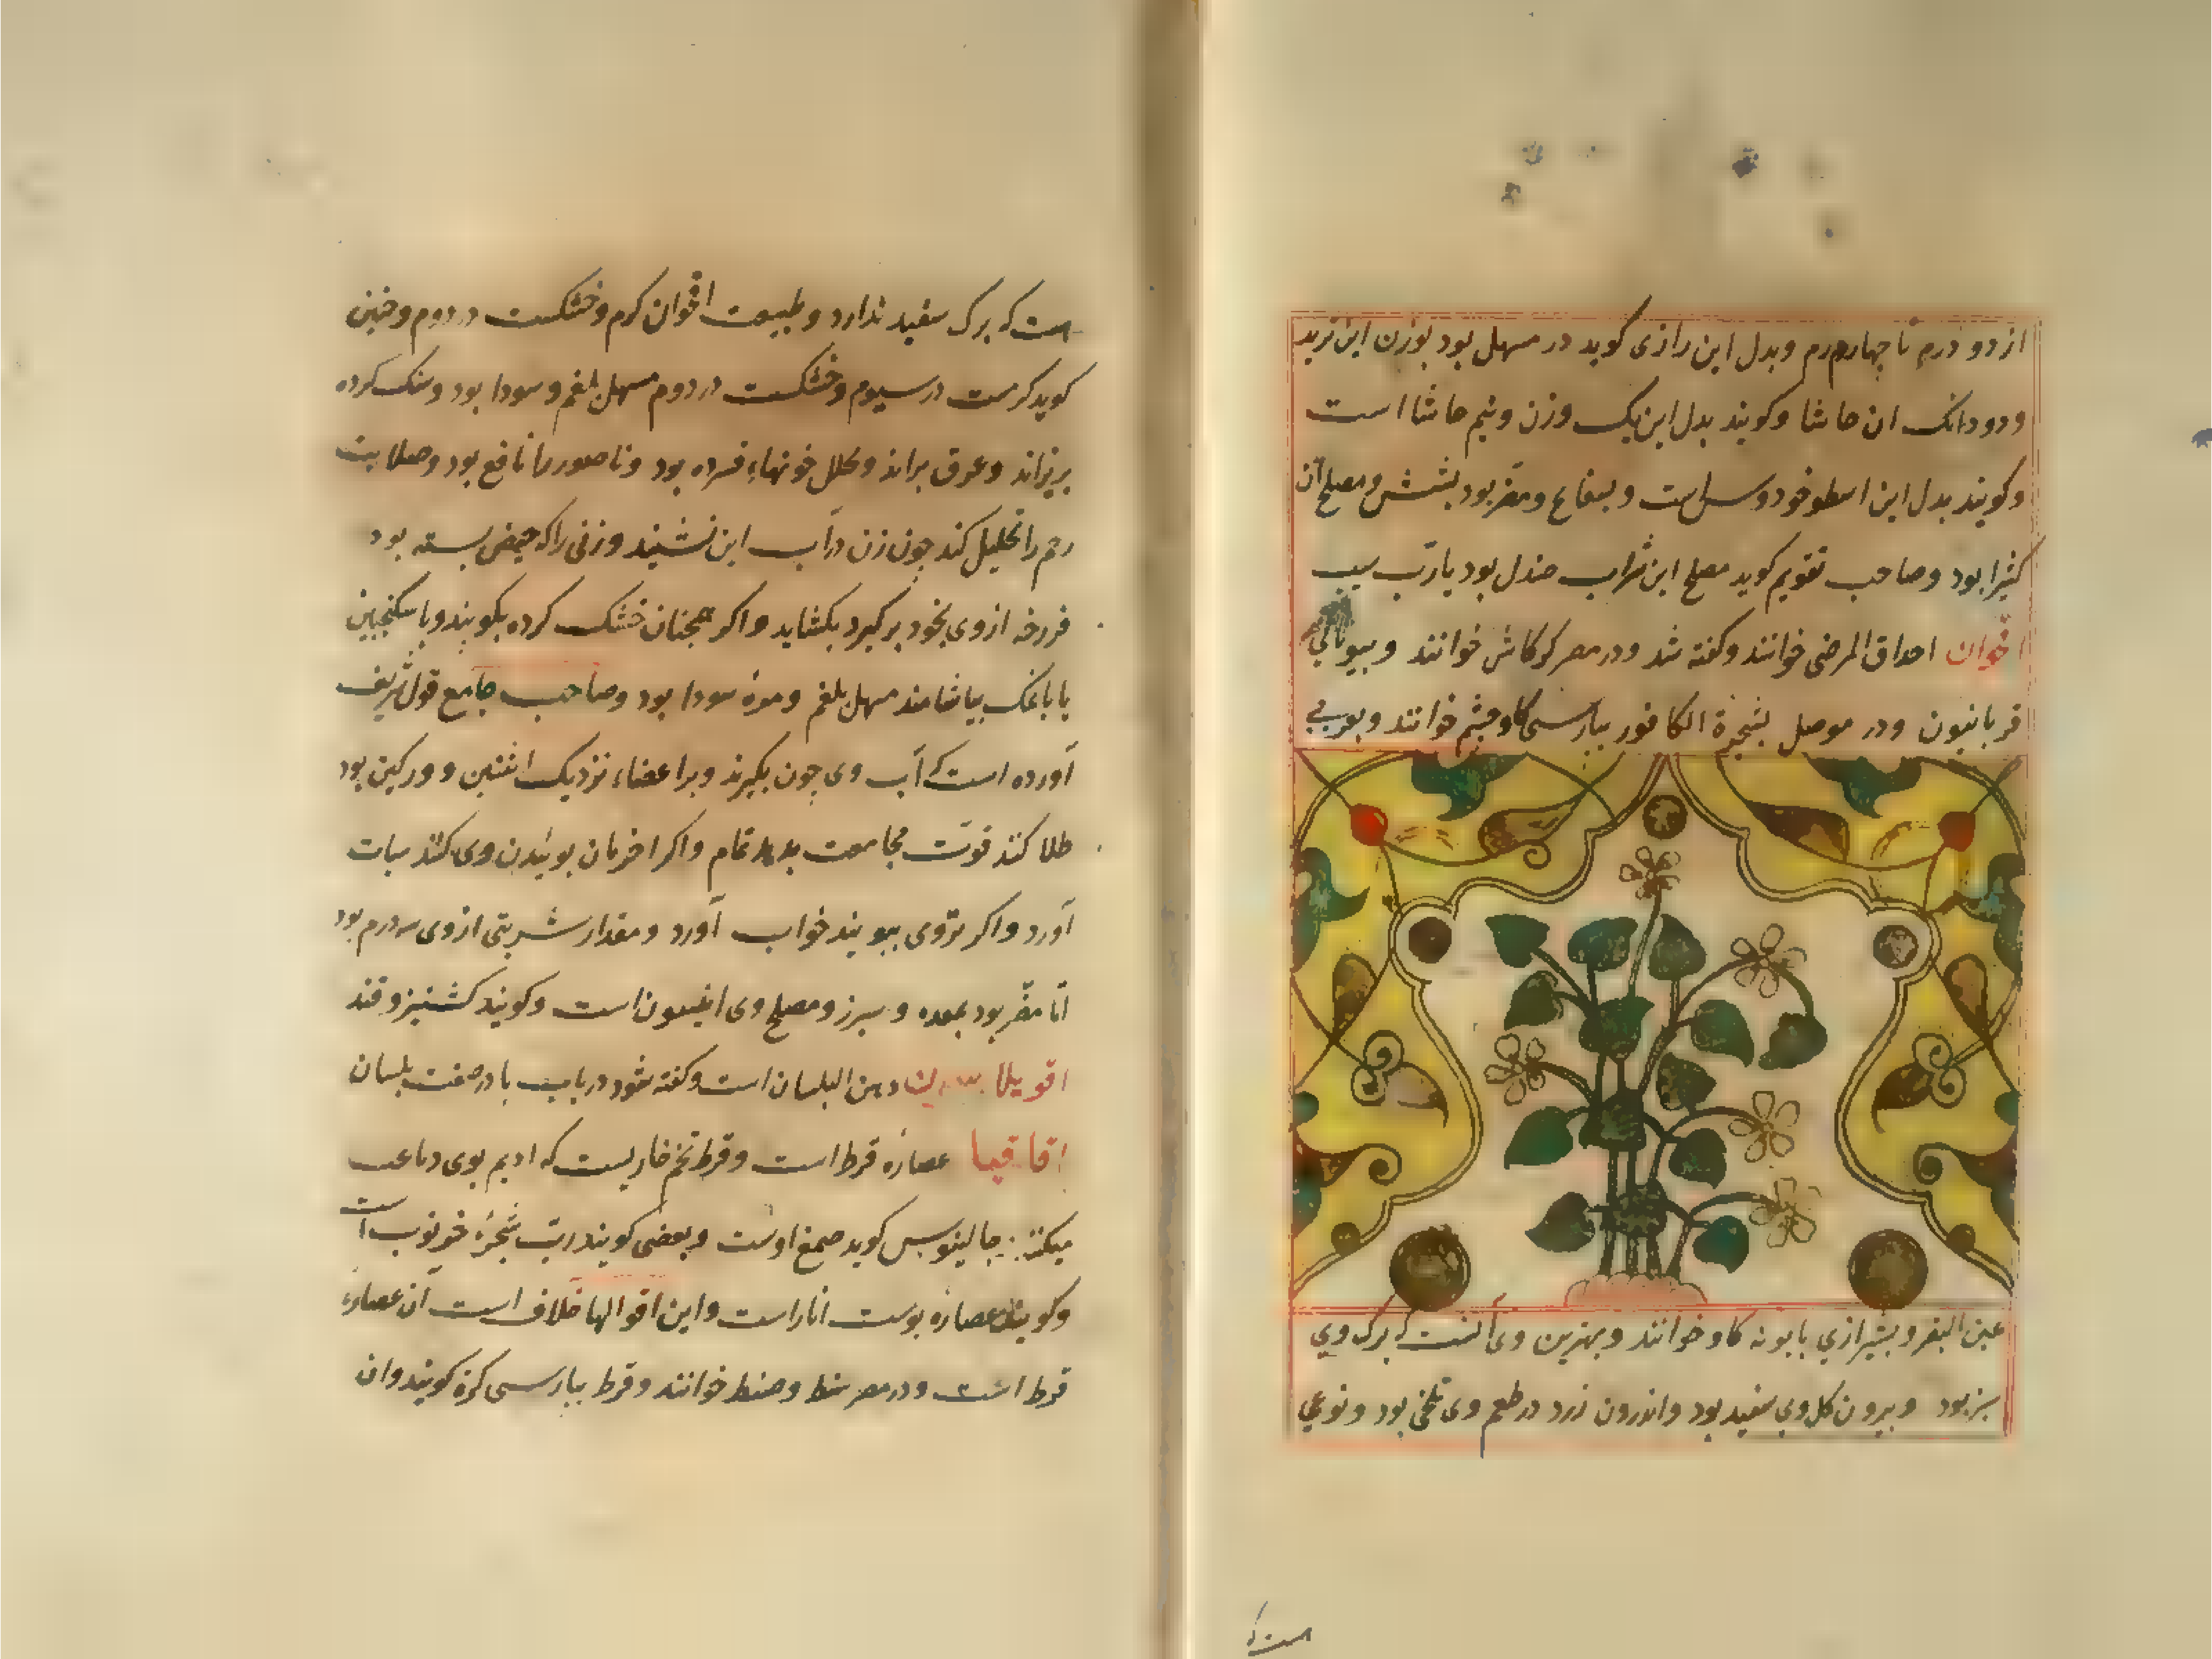 از دو درم تا چهار درم وبدل این رازی کوید در مسهل بود بوزن این تربد
ودو دانک ان حاشا وکویند بدل این یک وزن ونیم حاشا است
وکویند بدل این اسطوخودوس است وبسفاع ومضر بود بشش ومصلح آن
کثیرا بود وصاحب تقویم کوید مصلح این شراب صندل بود یا رتب سیب
اقحوان احداق المرضی خوانند وکفته شد ودر مصر کرکاش خوانند وبیونانی
قربانیون ودر موصل بشجرة الکافور ببارسی کاوچشم خوانند وبعربی
عین البقر وبشیرازی بابونه کاو خوانند وبهترین وی آنست که برک وی
سبز بود وبیرون کل وی سفید بود واندرون زرد در طعم وی تلخی بود ونوعی
است که
است که برک سفید ندارد وطبیعت اقحوان کرم وخشکست در دوم وحنین
کوید کرمست در سیوم وخشکست در دوم مسهل بلغم وسودا بود وسنک کرده
بریزاند وعرق براند ومحلل خونهاء فسرده بود وناصور را نافع بود وصلابت
رحم را تحلیل کند چون زن در آب این نشیند وزنی را که حیض بسته بود
فرزجه از وی بخود برکیرد بکشاید واکر همچنان خشک کرده بکوبند وبا سکنجبین
یا با نمک بیاشامند مسهل بلغم ومرهٔ سودا بود وصاحب جامع قول شریف
آورده است که آب وی چون بکیرند وبر اعضاء نزدیک انثیین وورکین بود
طلا کنند قوت مجامعت بدهد تمام واکر ادمان بوئیدن وی کنند سبات
آورد واکر تر وی ببویند خواب آورد ومقدار شربتی از وی سه درم بود
اما مضر بود بمعده وسپرز ومصلح وی انیسون است وکویند کشنیز وقند
اقویلا دهن البلسان است وکفته شود در باب با در صفت بلسان
اقاقیا عصاره قرط است وقرط تخم خاریست که ادیم بوی دباعت
میکنند جالینوس کوید صمغ اوست وبعضی کویند رب شجرهٔ خرنوب است
وکویند عصاره پوست انار است واین اقوالها خلاف است آن عصاره
قرط است ودر مصر سنط وصنط خوانند وقرط ببارسی کرة کویند وان